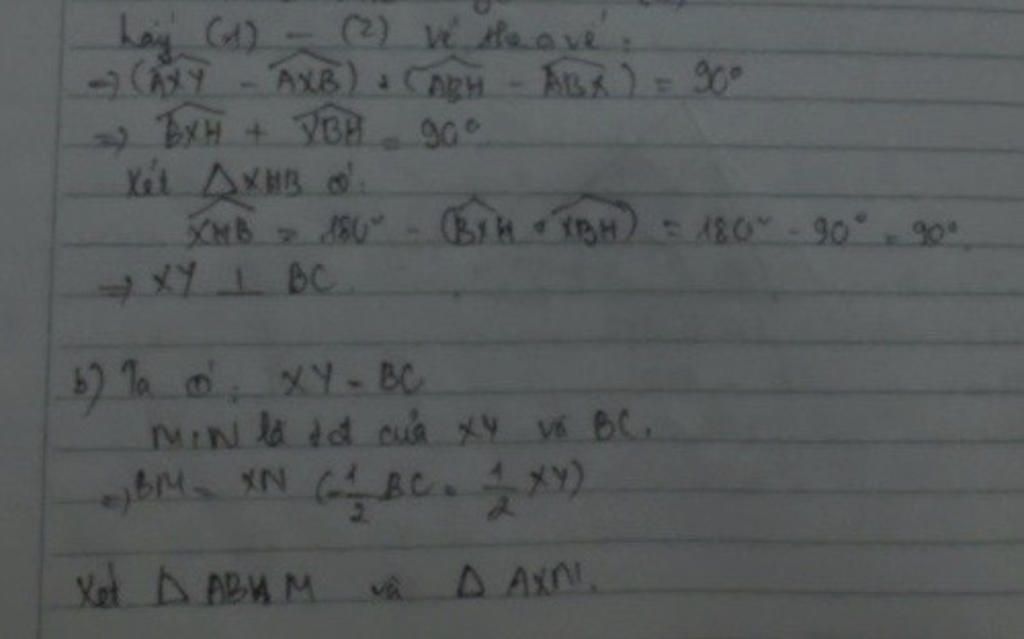 Lấy (1) - (2) vế theo vế:
=> (AXY - AXB) + (ABH - ABX) = 90°
=> BXH + XBH = 90°
Xét △XHB có:
XHB = 180° - (BXH + XBH) = 180° - 90° = 90°
=> XY ⊥ BC
b) Ta có: XY = BC
M, N là của XY và BC.
=> BM = XN (1/2 BC = 1/2 XY)
Xét △ AB M và △ AXN.